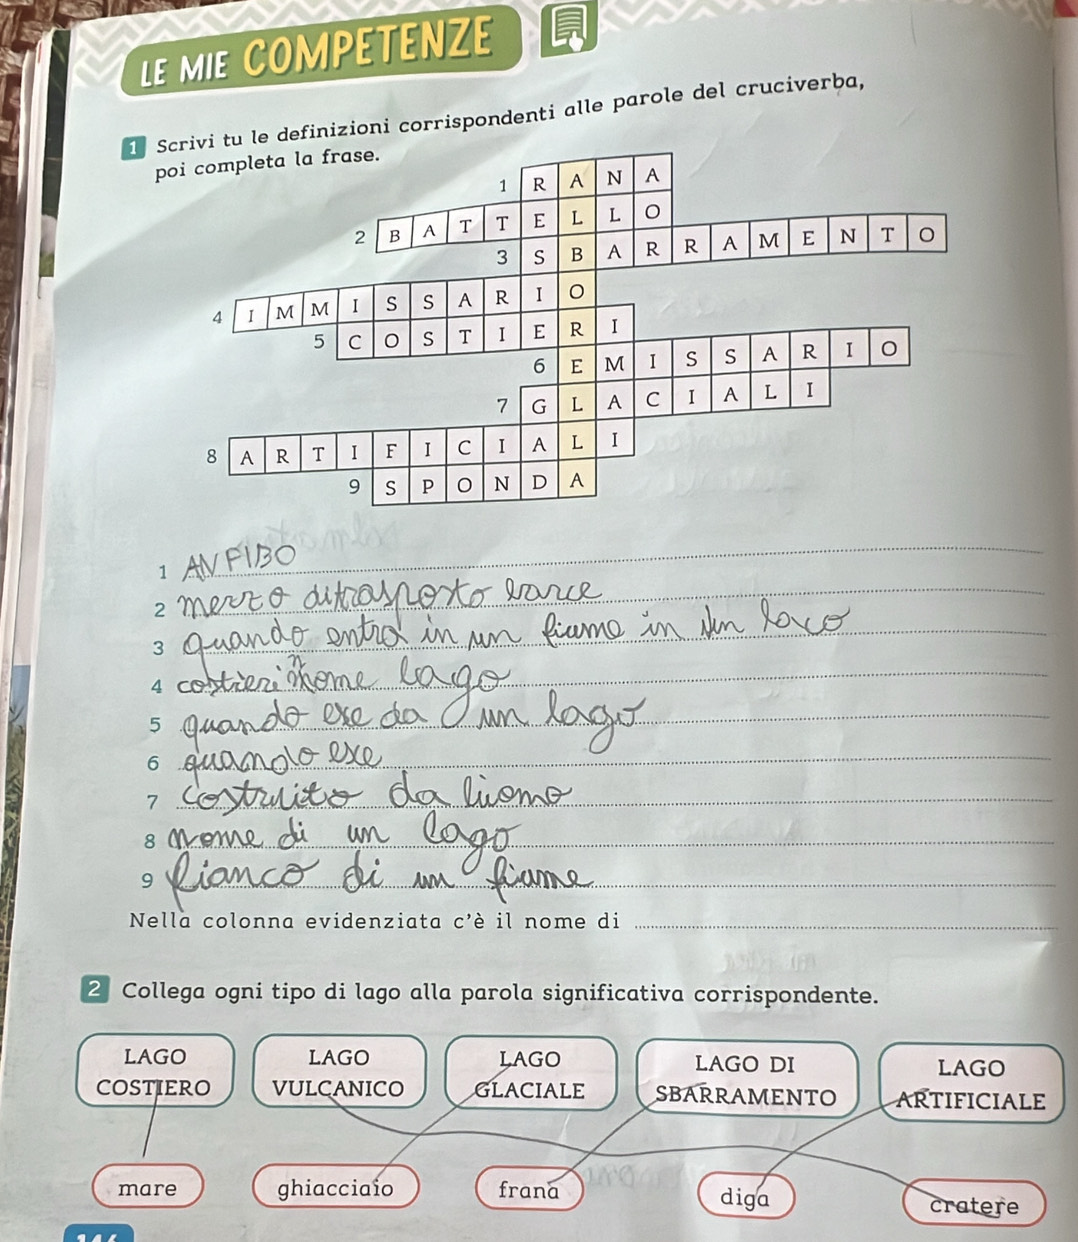 LE MIE COMPETENZE
1 Scrivi tu le definizioni corrispondenti alle parole del cruciverba,
poi completa la frase.
1 R A N A
2 B A T T E L L O
3 S B A R R A M E N T O
4 I M M I S S A R I O
5 C O S T I E R I
6 E M I S S A R I O
7 G L A C I A L I
8 A R T I F I C I A L I
9 S P O N D A
1 ANFIBO
2 mezzo di trasporto
3 quando entra in un fiume in un laco
4 costieri nome lago
5 quando exe da un lago
6 quando exe
7 costruito da liomo
8 nome di un lago
9 fianco di un fiume
Nella colonna evidenziata c'è il nome di
2 Collega ogni tipo di lago alla parola significativa corrispondente.
LAGO COSTIERO
LAGO VULCANICO
LAGO GLACIALE
LAGO DI SBARRAMENTO
LAGO ARTIFICIALE
mare
ghiacciaio
frana
diga
cratere